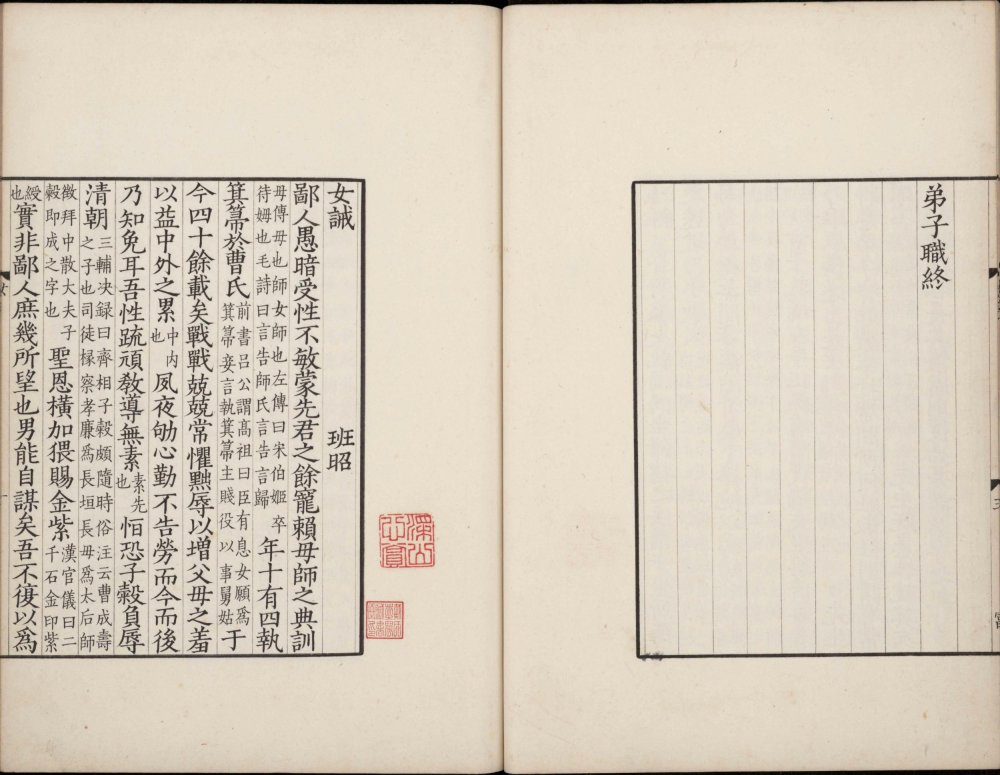 弟子職終
女誡 班昭
鄙人愚暗受性不敏蒙先君之餘寵賴母師之典訓
母傅母也師女師也左傳曰宋伯姬卒待姆也毛詩曰言告師氏言告言歸年十有四執
箕箒於曹氏前書呂公謂髙祖曰臣有息女願爲箕箒妾言執箕箒主賤役以事舅姑于
今四十餘載矣戰戰兢兢常懼黜辱以增父母之羞
以益中外之累中内也夙夜劬心勤不告勞而今而後
乃知免耳吾性疏頑敎導無素素先也恒恐子穀負辱
清朝三輔决録曰齊相子穀頗隨時俗注云曹成壽之子也司徒掾察孝廉爲長垣長母爲太后師
徵拜中散大夫子穀即成之字也聖恩橫加猥賜金紫漢官儀曰二千石金印紫
綬也實非鄙人庶幾所望也男能自謀矣吾不復以爲